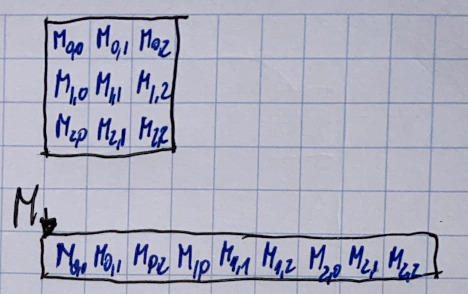 M0,0 M0,1 M0,2
M1,0 M1,1 M1,2
M2,0 M2,1 M2,2
M
M0,0 M0,1 M0,2 M1,0 M1,1 M1,2 M2,0 M2,1 M2,2